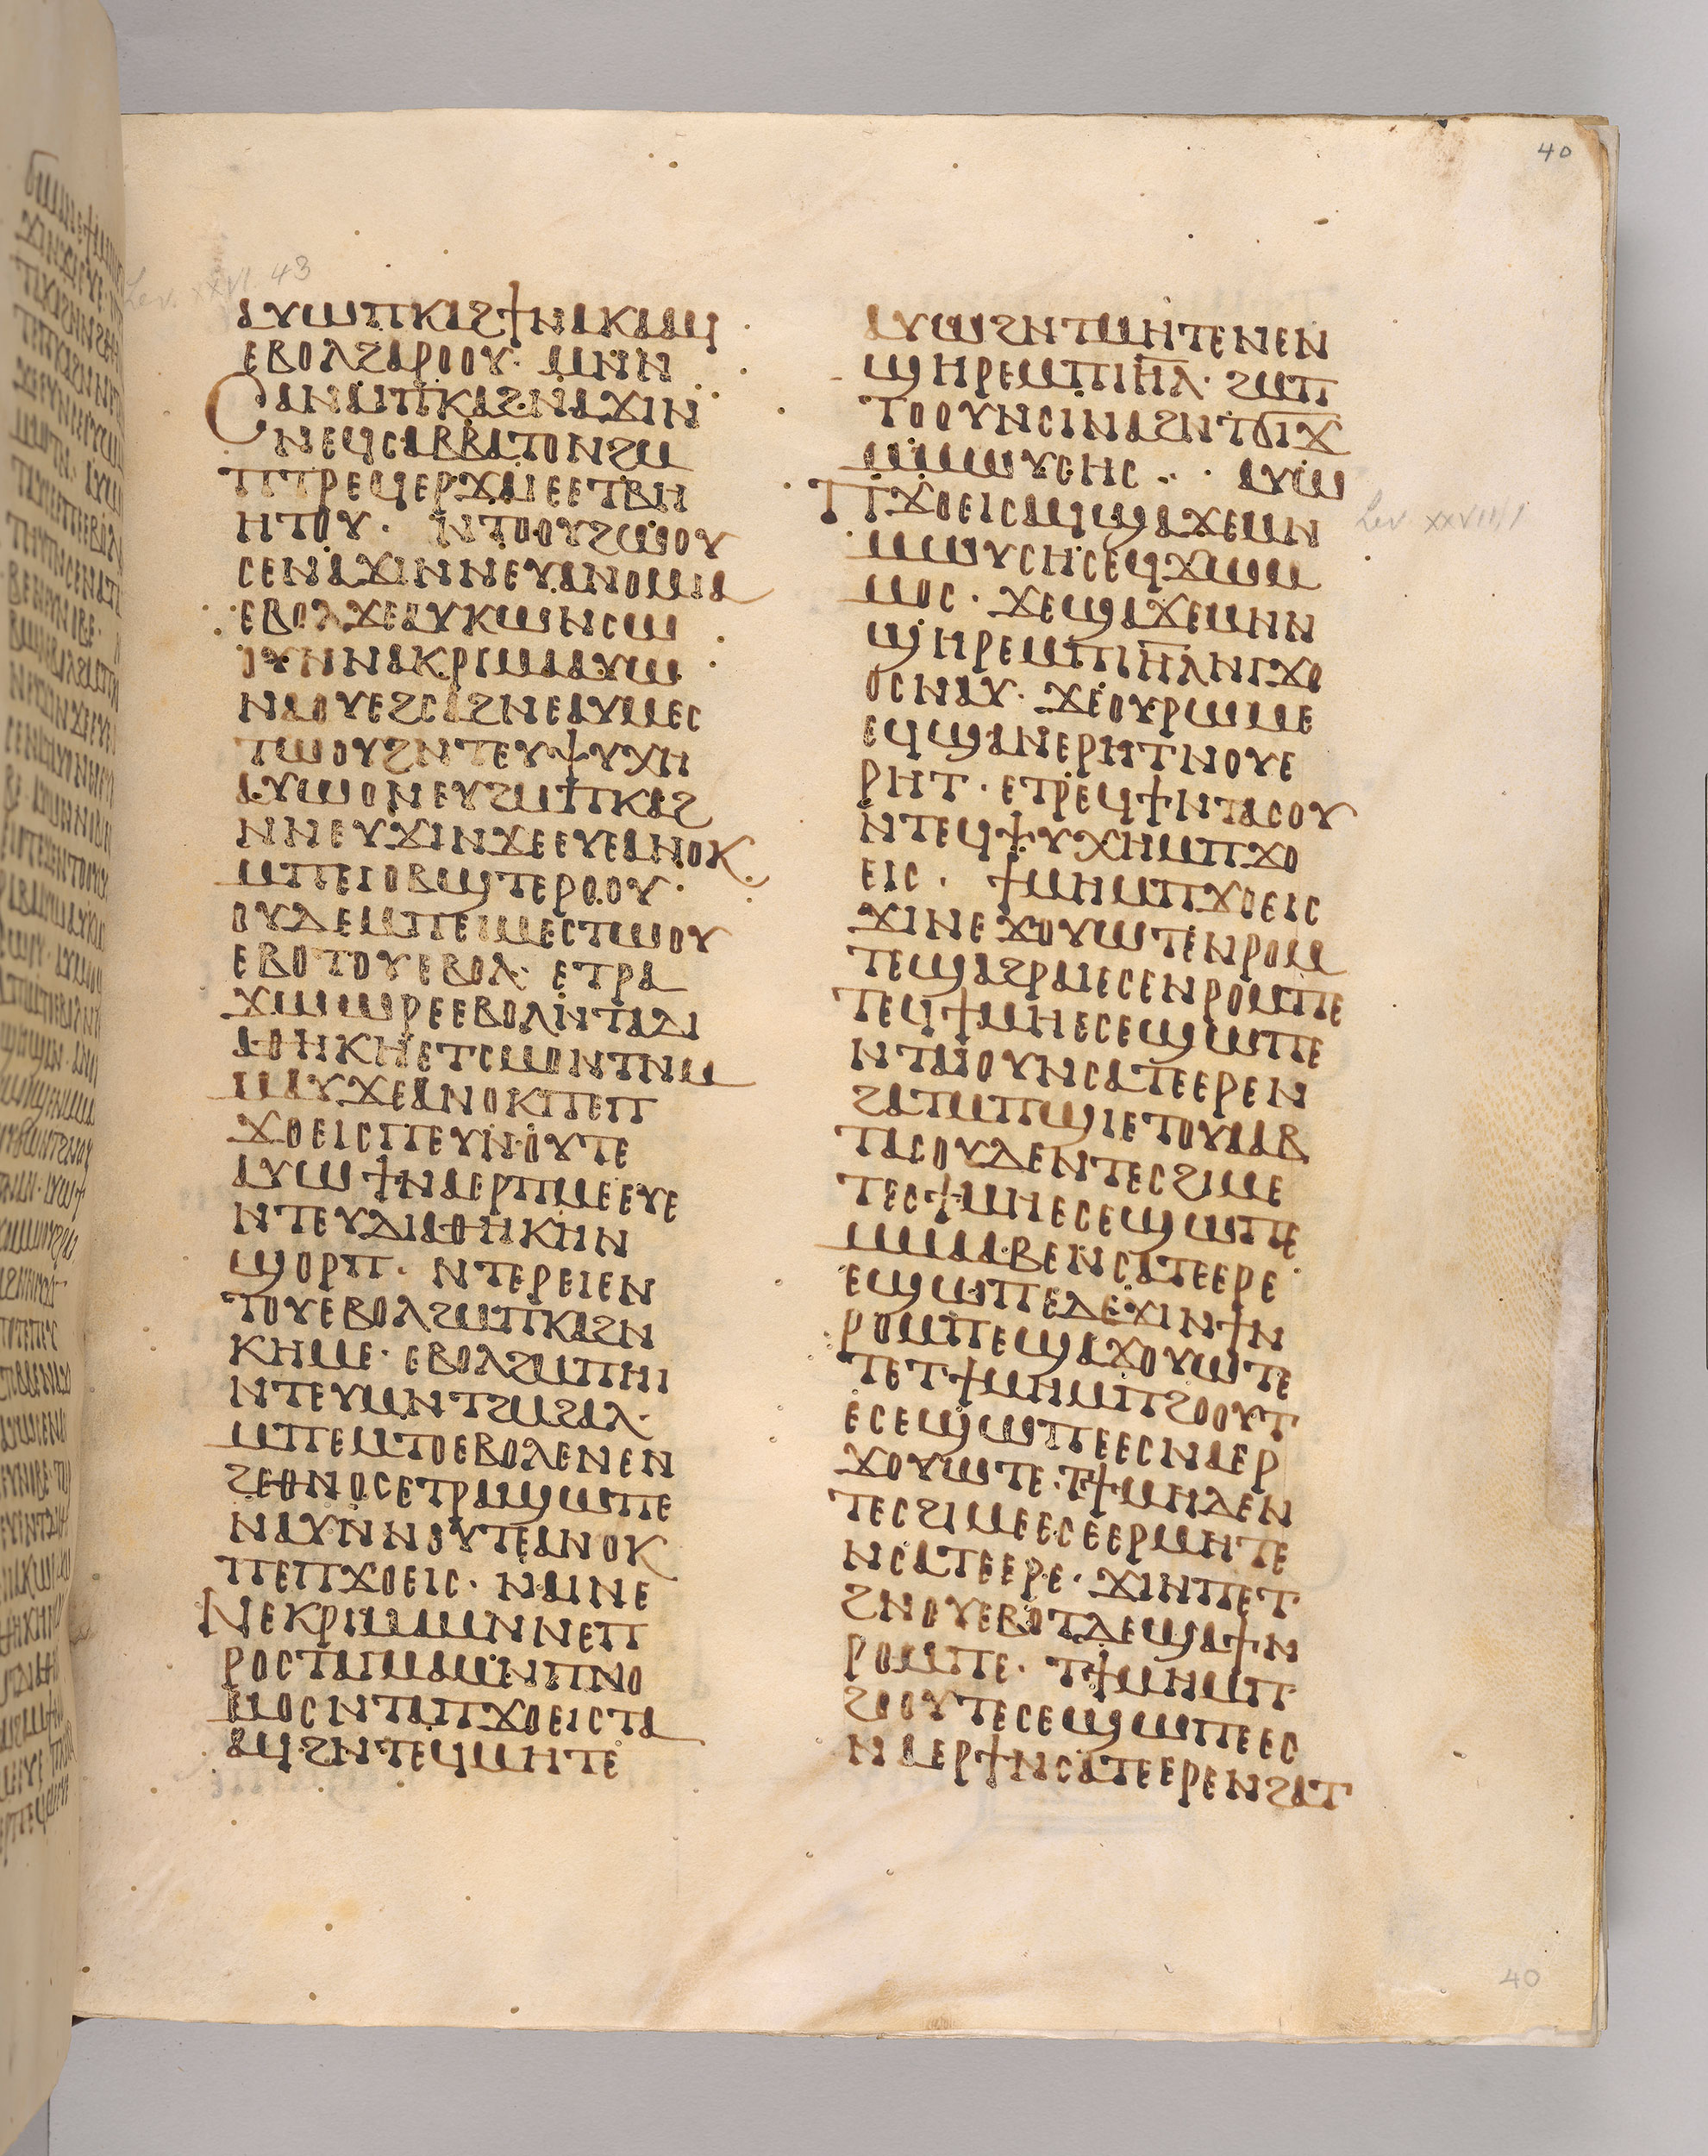 40
Lev. xxvi. 43
ⲁⲩⲱⲡⲕⲁϩϯⲛⲁⲕⲁⲁϥ
ⲉⲃⲟⲗϩⲁⲣⲟⲟⲩ· ⲙⲛⲛ
ⲥⲁⲛⲁⲙⲡⲕⲁϩⲛⲁϫⲓⲛ
ⲛⲉϥⲥⲁⲃⲃⲁⲧⲟⲛϩⲙ
ⲡⲧⲣⲉϥⲉⲣϫⲁⲓⲉⲉⲧⲃⲏ
ⲏⲧⲟⲩ· ⲛⲧⲟⲟⲩϩⲱⲟⲩ
ⲥⲉⲛⲁϫⲓⲛⲛⲉⲩⲁⲛⲟⲙⲓⲁ
ⲉⲃⲟⲗϫⲉⲁⲩⲕⲱⲛⲥⲱ
ⲟⲩⲛⲛⲁⲕⲣⲓⲙⲁⲁⲩⲱ
ⲛⲁⲟⲩⲉϩⲥⲁϩⲛⲉⲁⲩⲙⲉⲥ
ⲧⲱⲟⲩϩⲛⲧⲉⲩⲯⲩⲭⲏ
ⲁⲩⲱⲟⲛⲉⲩϩⲙⲡⲕⲁϩ
ⲛⲛⲉⲩϫⲓⲛϫⲉⲉⲩⲉⲁⲛⲟⲕ
ⲙⲡⲉⲓⲟⲃϣⲧⲉⲣⲟⲟⲩ·
ⲟⲩⲇⲉⲙⲡⲉⲓⲙⲉⲥⲧⲱⲟⲩ
ⲉⲃⲟⲧⲟⲩⲉⲃⲟⲗ· ⲉⲧⲣⲁ
ϫⲱⲱⲣⲉⲉⲃⲟⲗⲛⲧⲁⲇⲓ
ⲁⲑⲏⲕⲏⲉⲧⲥⲙⲟⲛⲧⲛⲙ
ⲙⲁⲩϫⲉⲁⲛⲟⲕⲡⲉⲡ
ϫⲟⲉⲓⲥⲡⲉⲩⲛⲟⲩⲧⲉ
ⲁⲩⲱϯⲛⲁⲉⲣⲡⲙⲉⲉⲩⲉ
ⲛⲧⲉⲩⲇⲓⲁⲑⲏⲕⲏⲛ
ϣⲟⲣⲡ· ⲛⲧⲉⲣⲉⲓⲉⲛ
ⲧⲟⲩⲉⲃⲟⲗϩⲙⲡⲕⲁϩⲛ
ⲕⲏⲙⲉ· ⲉⲃⲟⲗϩⲙⲡⲏⲓ
ⲛⲧⲉⲩⲙⲛⲧϩⲙϩⲁⲗ·
ⲙⲡⲉⲙⲧⲟⲉⲃⲟⲗⲉⲛⲉⲛ
ϩⲉⲑⲛⲟⲥⲉⲧⲣⲁϣⲱⲡⲉ
ⲛⲁⲩⲛⲛⲟⲩⲧⲉⲁⲛⲟⲕ
ⲡⲉⲡϫⲟⲉⲓⲥ· ⲛⲁⲓⲛⲉ
ⲛⲉⲕⲣⲓⲙⲁⲙⲛⲛⲉⲡ
ⲣⲟⲥⲧⲁⲅⲙⲁⲙⲛⲡⲛⲟ
ⲙⲟⲥⲛⲧⲁⲡϫⲟⲉⲓⲥⲧⲁ
ⲁϥϩⲛⲧⲉϥⲙⲏⲧⲉ
ⲁⲩⲱϩⲛⲧⲙⲏⲧⲉⲛⲉⲛ
ϣⲏⲣⲉⲙⲡⲓⲏⲗ· ϩⲙⲡ
ⲧⲟⲟⲩⲛⲥⲓⲛⲁϩⲛⲧϭⲓϫ
ⲙⲙⲱⲩⲥⲏⲥ·· ⲁⲩⲱ
ⲡϫⲟⲉⲓⲥⲁϥϣⲁϫⲉⲙⲛ
Lev. xxvii. 1
ⲙⲱⲩⲥⲏⲥⲉϥϫⲱⲙ
ⲙⲟⲥ· ϫⲉϣⲁϫⲉⲙⲛⲛ
ϣⲏⲣⲉⲙⲡⲓⲏⲗⲛⲅϫⲟ
ⲟⲥⲛⲁⲩ· ϫⲉⲟⲩⲣⲱⲙⲉ
ⲉϥϣⲁⲛⲉⲣⲏⲧⲛⲟⲩⲉ
ⲣⲏⲧ· ⲉⲧⲣⲉϥϯⲛⲧⲁⲥⲟⲩ
ⲛⲧⲉϥⲯⲩⲭⲏⲙⲡϫⲟ
ⲉⲓⲥ· ϯⲙⲏⲙⲡϫⲟⲉⲓⲥ
ϫⲓⲛⲉϫⲟⲩⲱⲧⲉⲛⲣⲟⲙ
ⲡⲉϣⲁϩⲣⲁⲓⲉⲥⲉⲛⲣⲟⲙⲡⲉ
ⲧⲉϥϯⲙⲏⲉⲥⲉϣⲱⲡⲉ
ⲛⲧⲁⲓⲟⲩⲛⲥⲁⲧⲉⲉⲣⲉⲛ
ϩⲁⲧⲙⲡϣⲓⲉⲧⲟⲩⲁⲁⲃ
ⲧⲁⲥⲟⲩⲇⲉⲛⲧⲉⲥϩⲓⲙⲉ
ⲧⲉⲥϯⲙⲏⲉⲥⲉϣⲱⲡⲉ
ⲙⲙⲁⲁⲃⲉⲛⲥⲁⲧⲉⲉⲣⲉ
ⲉϣⲱⲡⲉⲇⲉϫⲓⲛϯⲛ
ⲣⲟⲙⲡⲉϣⲁϫⲟⲩⲱⲧⲉ
ⲧⲉⲧϯⲙⲏⲙⲡϩⲟⲟⲩⲧ
ⲉⲥⲉϣⲱⲡⲉⲉⲥⲛⲁⲉⲣ
ϫⲟⲩⲱⲧⲉ·ⲧϯⲙⲏⲇⲉⲛ
ⲧⲉⲥϩⲓⲙⲉⲉⲥⲉⲉⲣⲙⲏⲧⲉ
ⲛⲥⲁⲧⲉⲉⲣⲉ· ϫⲓⲛⲡⲉⲧ
ϩⲛⲟⲩⲉⲃⲟⲧⲇⲉϣⲁϯⲛ
ⲣⲟⲙⲡⲉ· ⲧϯⲙⲏⲙⲡ
ϩⲟⲟⲩⲧⲉⲥⲉϣⲱⲡⲉⲉⲥ
ⲛⲁⲉⲣϯⲛⲥⲁⲧⲉⲉⲣⲉⲛϩⲁⲧ
40